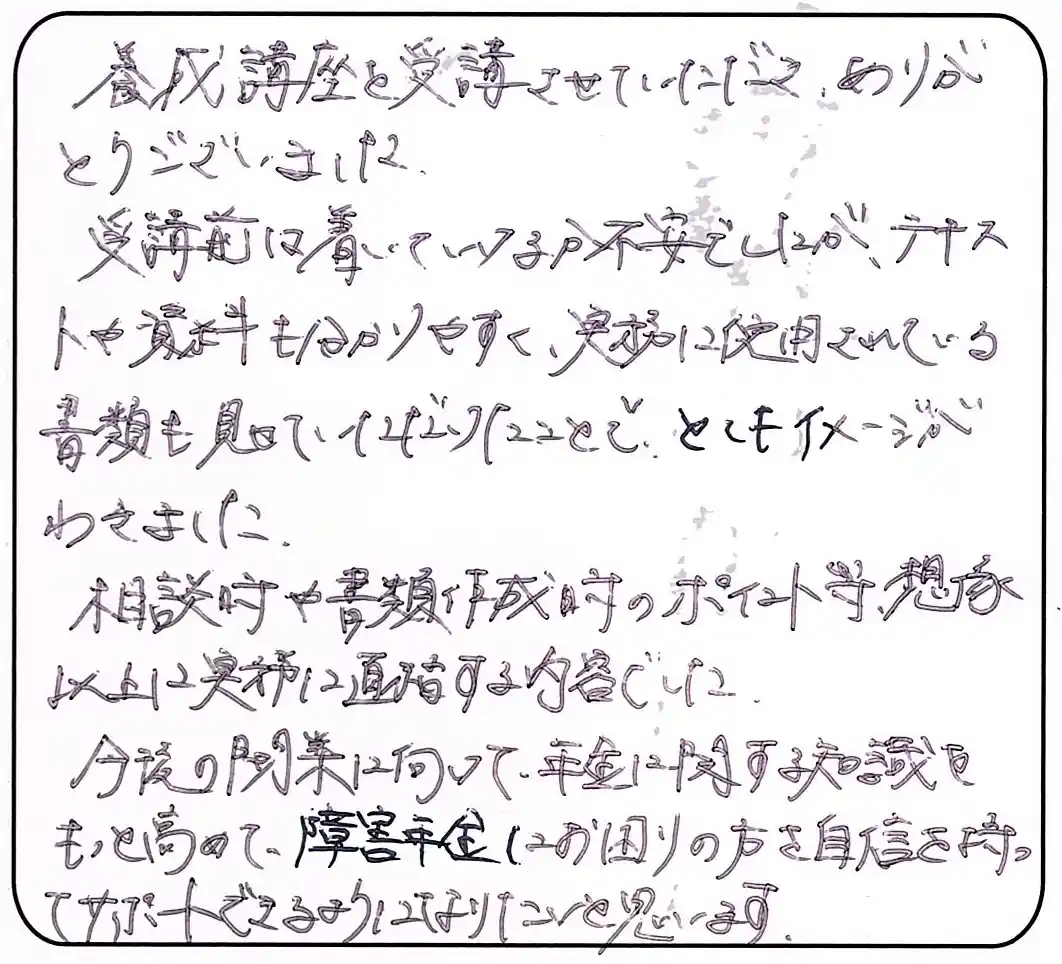 養成講座を受講させていただき、ありが
とうございました。
受講前は着いていけるか不安でしたが、テキス
トや資料も分かりやすく、実務に使用されている
書類も見せていただけたことで、とてもイメージが
わきました。
相談時や書類作成時のポイント等、想像
以上に実務に直結する内容でした。
今後の開業に向けて、年金に関する知識を
もっと高めて、障害年金にお困りの方を自信を持っ
てサポートできるようになりたいと思います。